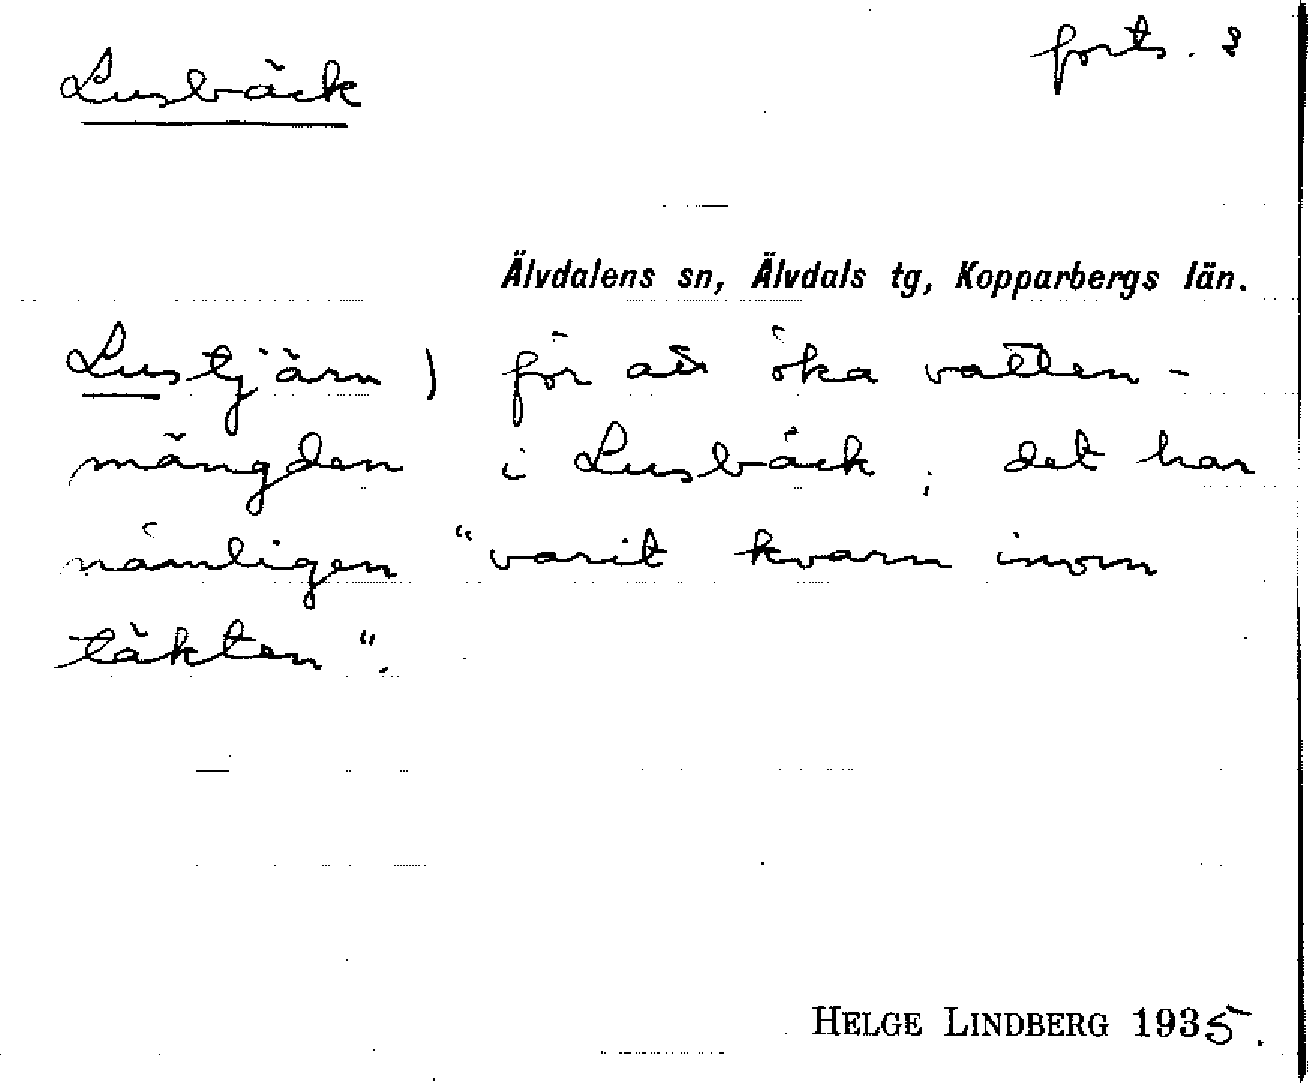 Lusbäck
forts. 2
Älvdalens sn, Älvdals tg, Kopparbergs län.
Lustjärn) för att öka vatten-
mängden i Lusbäck; det har
nämligen "varit kvarn inom
täkten".
HELGE LINDBERG 1935.